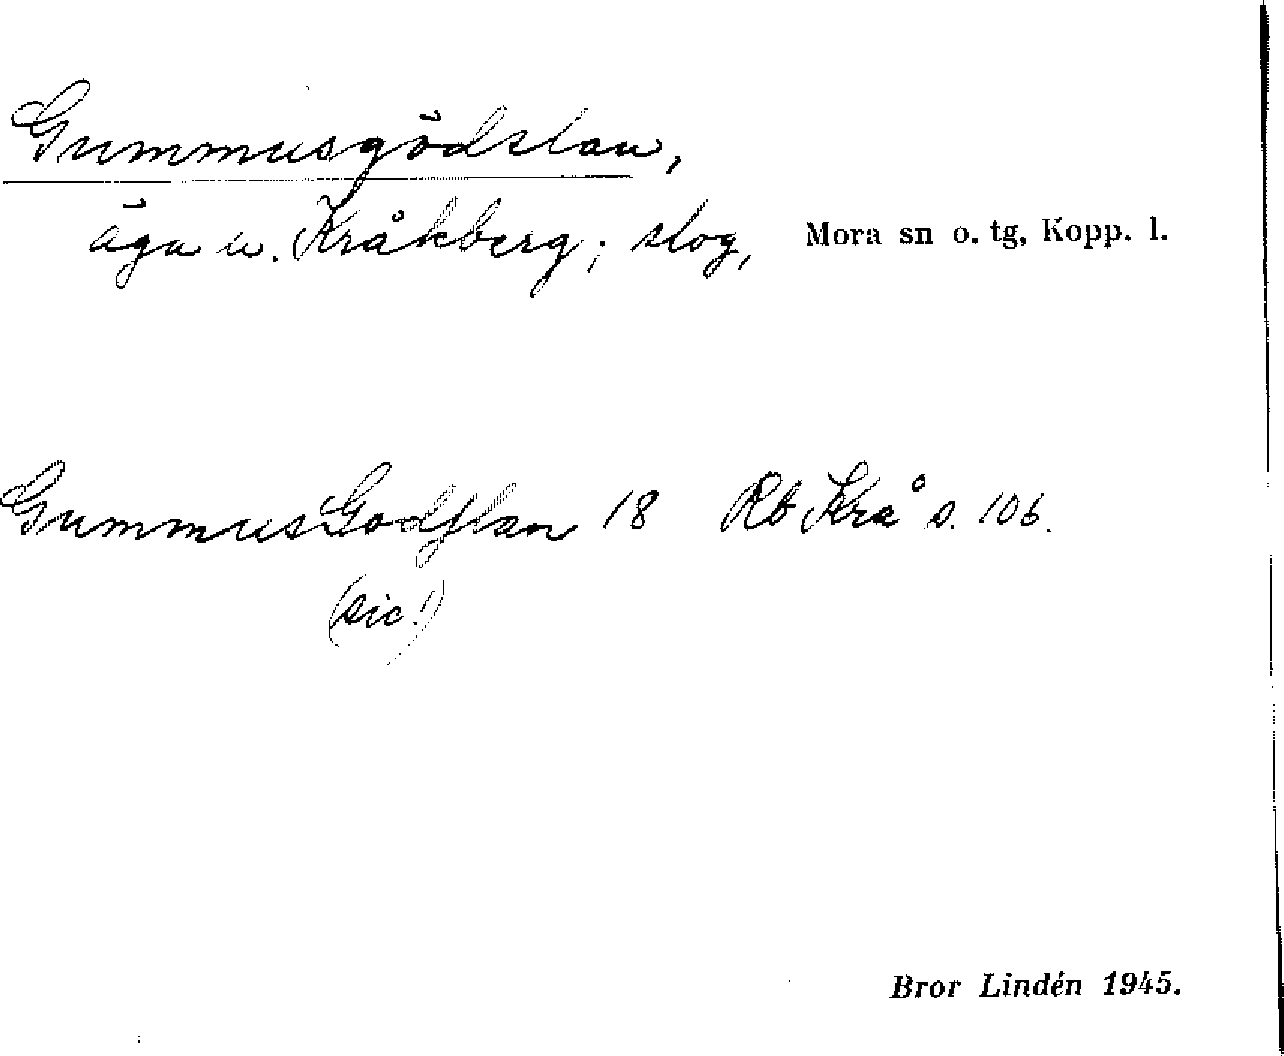 Gummusgödslan,
äga u. Kråkberg; slog, Mora sn o. tg, Kopp. l.
GummusGodslan 18 Rb Krå s. 106.
(sic!)
Bror Lindén 1945.